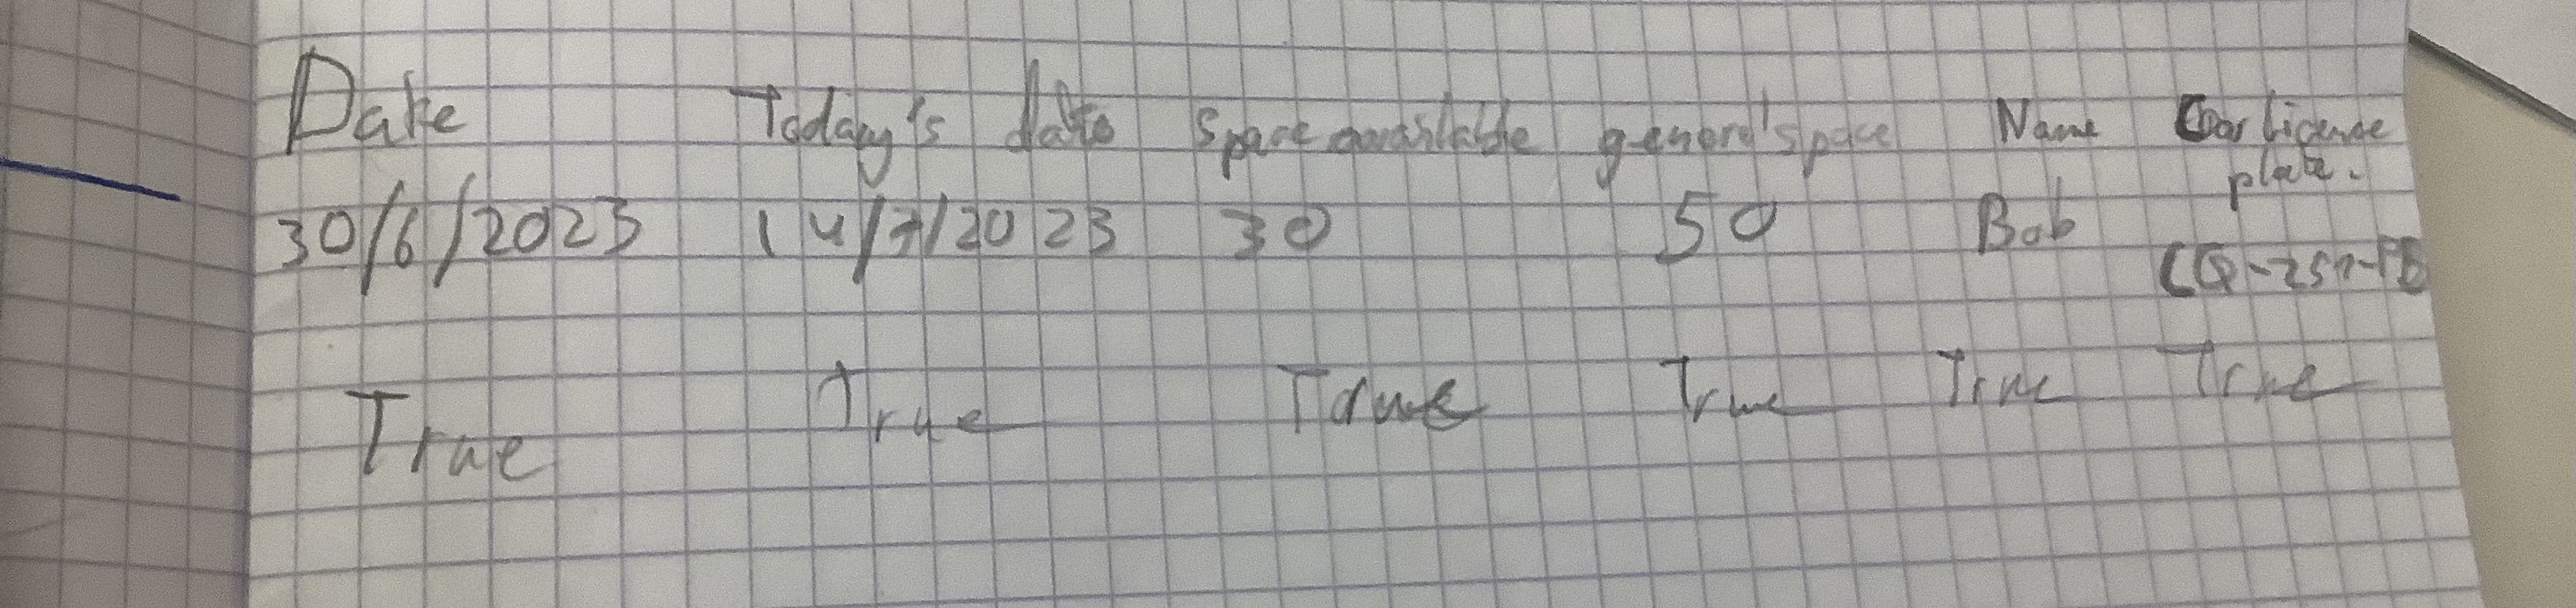 Date Today's date Space available general space Name Car license
plate.
30/6/2023 14/7/2023 30 50 Bob
True True True True True True